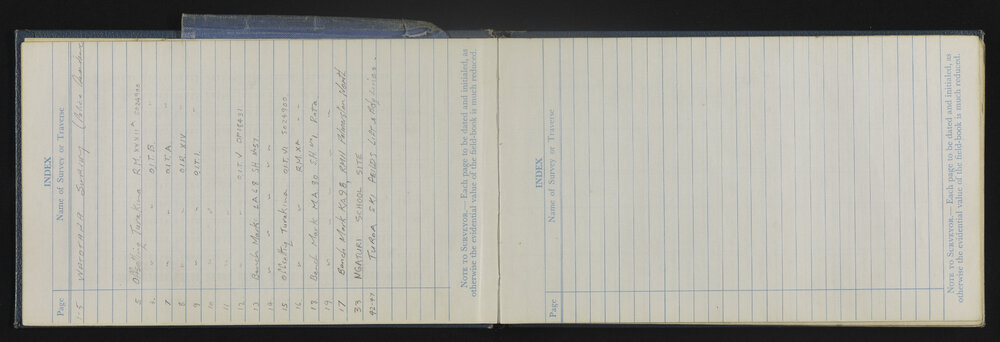 INDEX
Page Name of Survey or Traverse
1-5 Survey
5 Offsetting Turakina R.M. XXXII A SO24900
6 " " O.I.T. B. "
7 " " O.I.T. A "
8 " " O.I.R. XIV "
9 " " O.I.T. "
10 " "
11 " "
12 " " O.I.T. V
13 Bench Mark LA 68 S.H. No 1
14 " " "
15 Offsetting Turakina O.I.T. VI SO24900
16 " " R.M. XA "
18 Bench Mark MA 30 S.H. No 1 Rata
19 " " "
17 Bench Mark KA 98, RM11 Palmerston North
33 NGATURI SCHOOL SITE
42-47 TUROA SKI FIELDS Lift &
NOTE TO SURVEYOR.— Each page to be dated and initialed, as
otherwise the evidential value of the field-book is much reduced.
INDEX
Page Name of Survey or Traverse
NOTE TO SURVEYOR.— Each page to be dated and initialed, as
otherwise the evidential value of the field-book is much reduced.